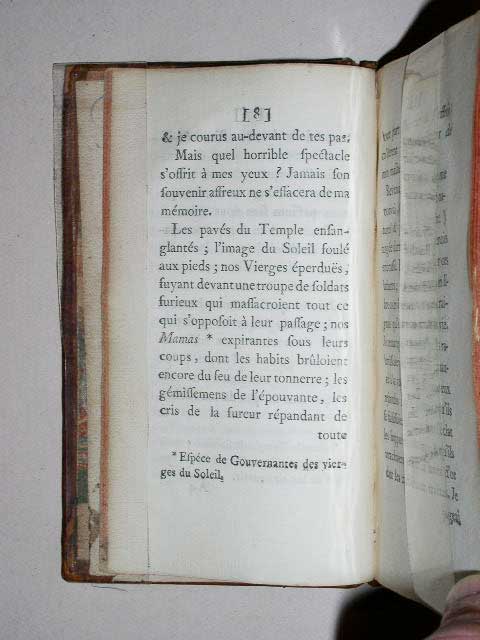 [8]
& je courus au-devant de tes pas.
Mais quel horrible ſpectacle
s'offrit à mes yeux ? Jamais ſon
ſouvenir affreux ne s'effacera de ma
mémoire.
Les pavés du Temple enſan-
glantés ; l'image du Soleil foulé
aux pieds ; nos Vierges éperduës,
fuyant devant une troupe de ſoldats
furieux qui maſſacroient tout ce
qui s'oppoſoit à leur paſſage ; nos
Mamas * expirantes ſous leurs
coups, dont les habits brûloient
encore du feu de leur tonnerre ; les
gémiſſemens de l'épouvante, les
cris de la fureur répandant de
toute
* Eſpéce de Gouvernantes des vier-
ges du Soleil.